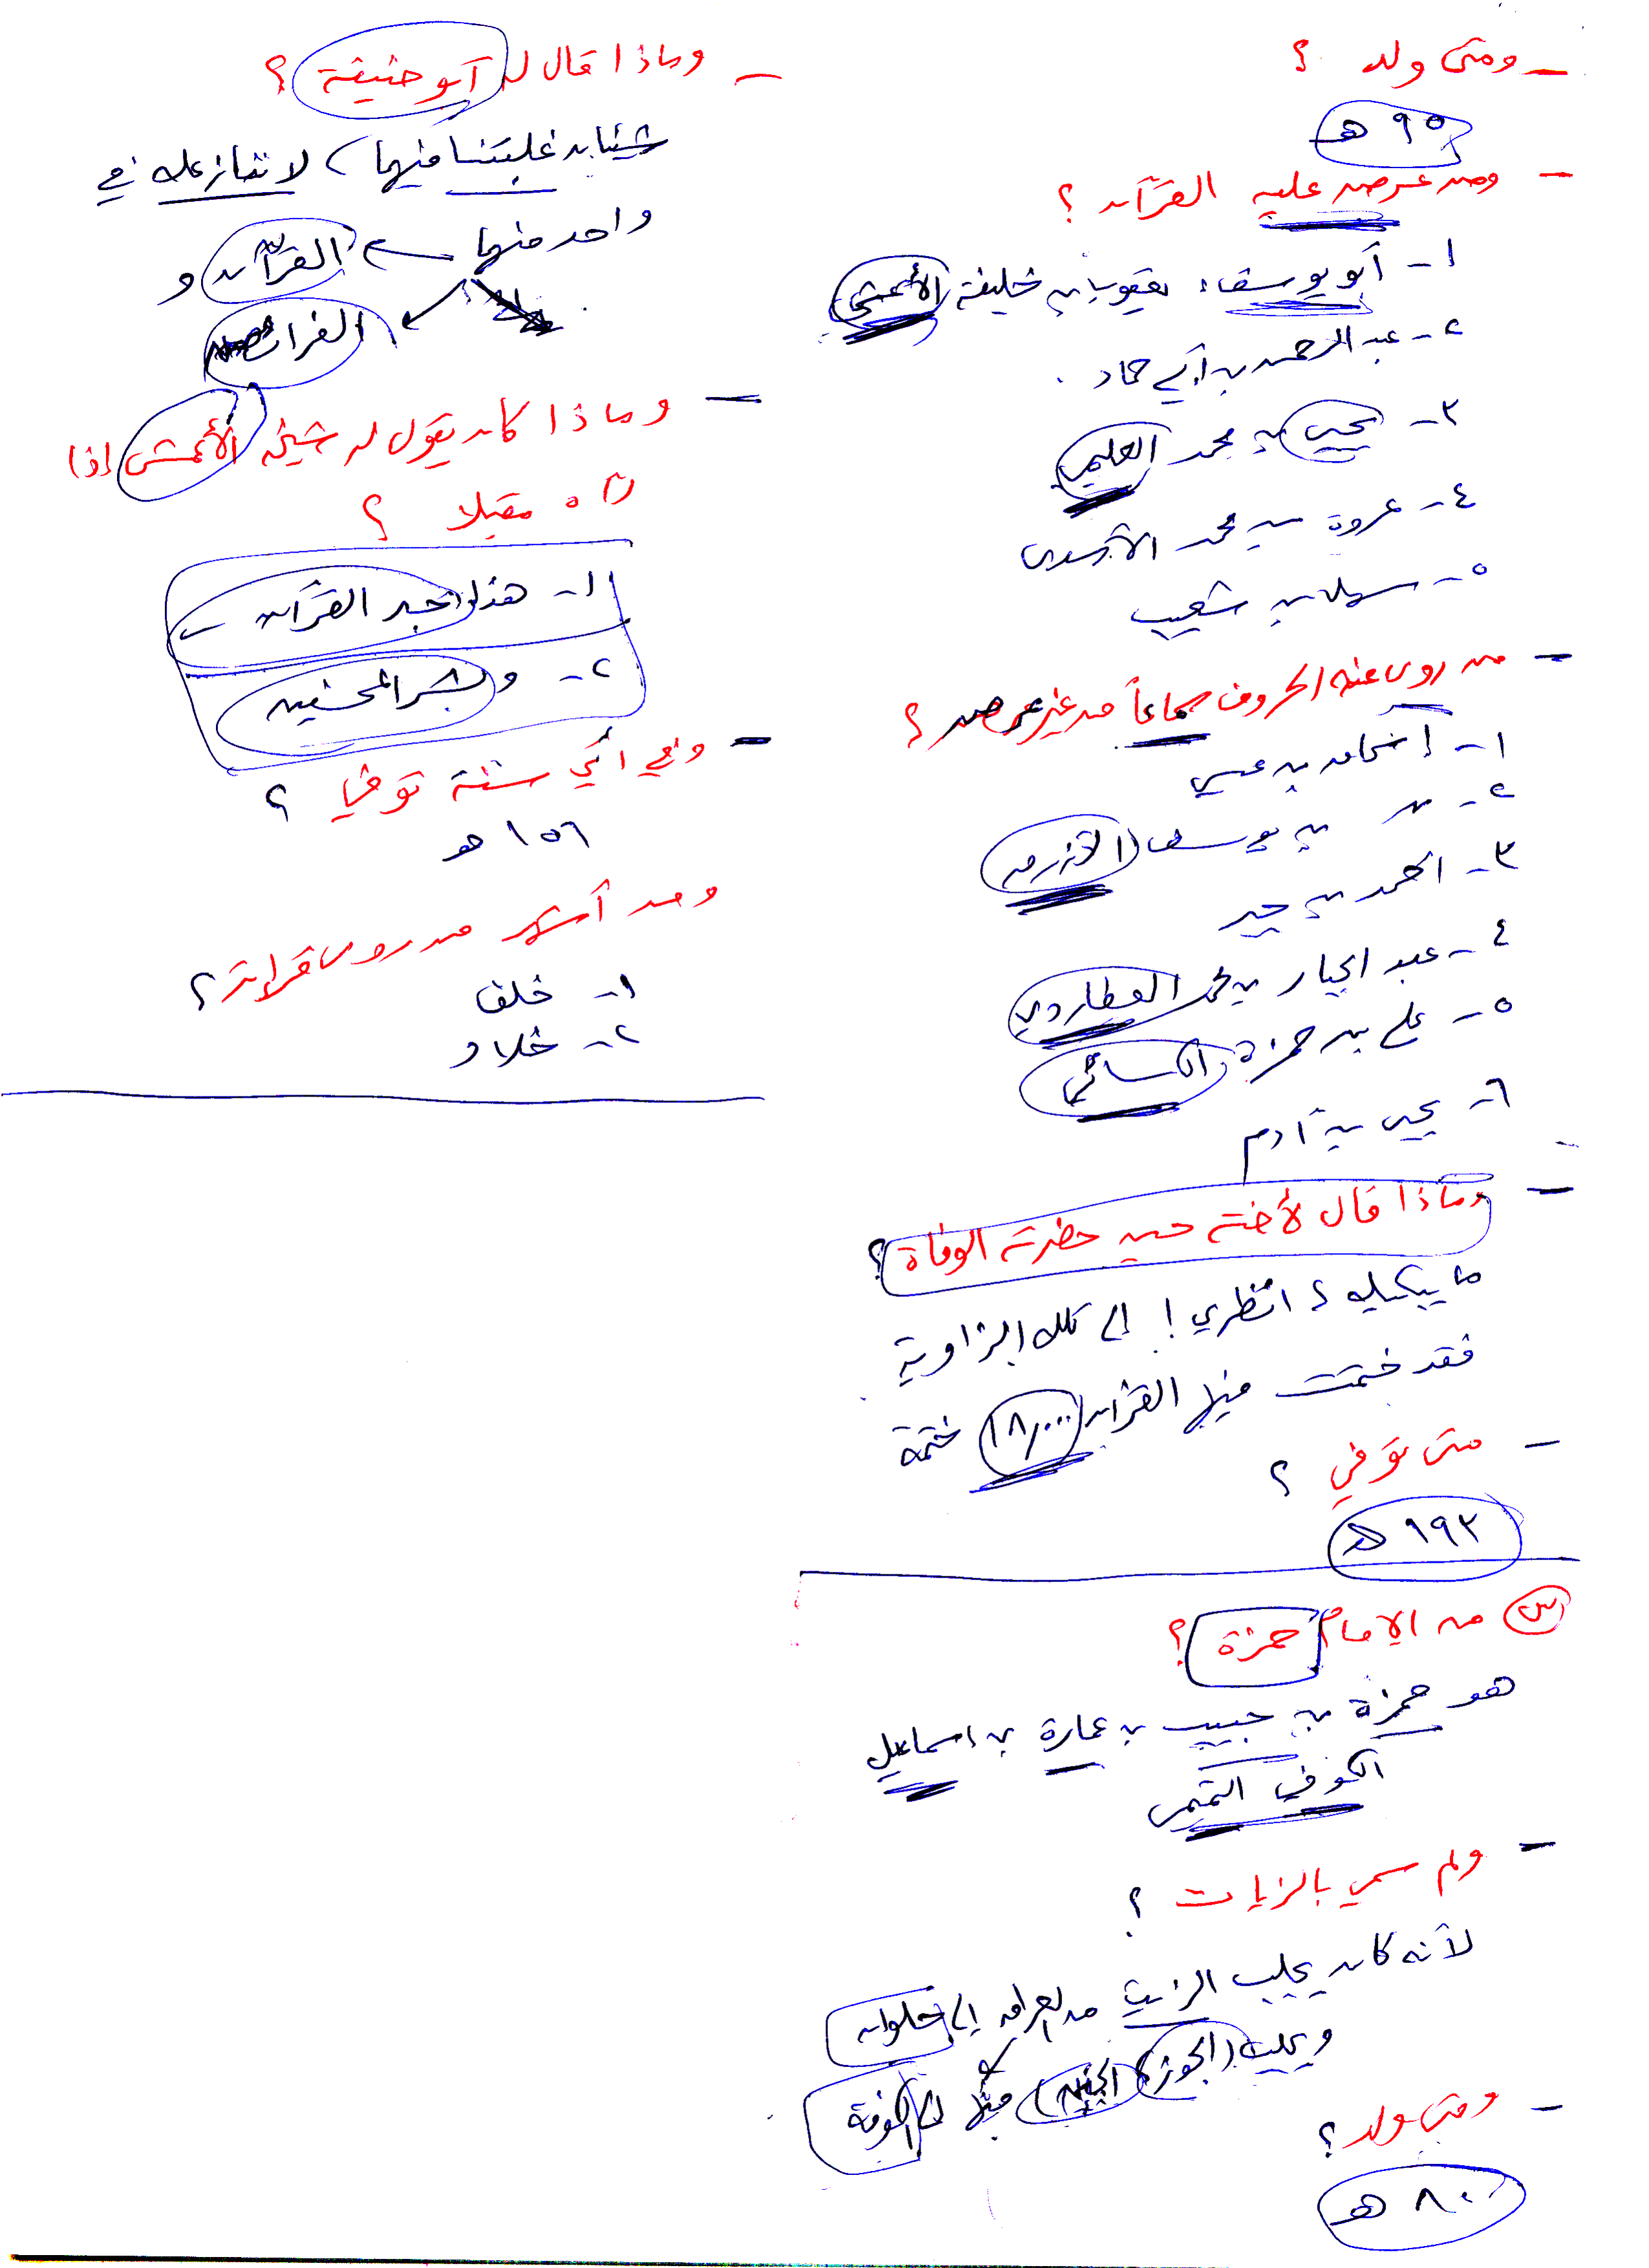 - ومتى ولد ؟
٩٥ هـ
- ومن عرض عليه القرآن ؟
١- أبو يوسف، يعقوب بن خليفة الأعشى
٢- عبد الرحمن بن أبي حماد .
٣- يحيى بن محمد العليمي
٤- عروة بن محمد الأسدي
٥- سهل بن شعيب
- من روى عنه الحروف سماعاً من غير عرض ؟
١- إسحاق بن عيسى
٢- بن يوسف الأزرق
٣- أحمد بن جبير
٤- عبد الجبار بن محمد العطاردي
٥- علي بن حمزة الكسائي
٦- يحيى بن آدم
- وماذا قال لأخته حين حضرته الوفاة ؟
ما يبكيك ؟ انظري ! إلى تلك الزاوية
فقد ختمت فيها القرآن ١٨,٠٠٠ ختمة
- متى توفي ؟
١٩٣ هـ
س من الإمام حمزة ؟
هو حمزة بن حبيب بن عمارة بن إسماعيل
الكوفي التيمي
- ولم سمي بالزيات ؟
لأنه كان يجلب الزيت من العراق إلى حلوان
ويجلب الجوز والجبن منها إلى الكوفة
- ومتى ولد ؟
٨٠ هـ
- وماذا قال له أبو حنيفة ؟
شيئان غلبتنا فيهما، لا ننازعك في
واحد منهما القرآن و
الفرائض
- وماذا كان يقول له شيخه الأعمش إذا
رآه مقبلا ؟
١- هذا حبر القرآن -
٢- وبشر المحسنين
- وفي أي سنة توفي ؟
١٥٦ هـ
ومن أشهر من روى قراءته ؟
١- خلف
٢- خلاد